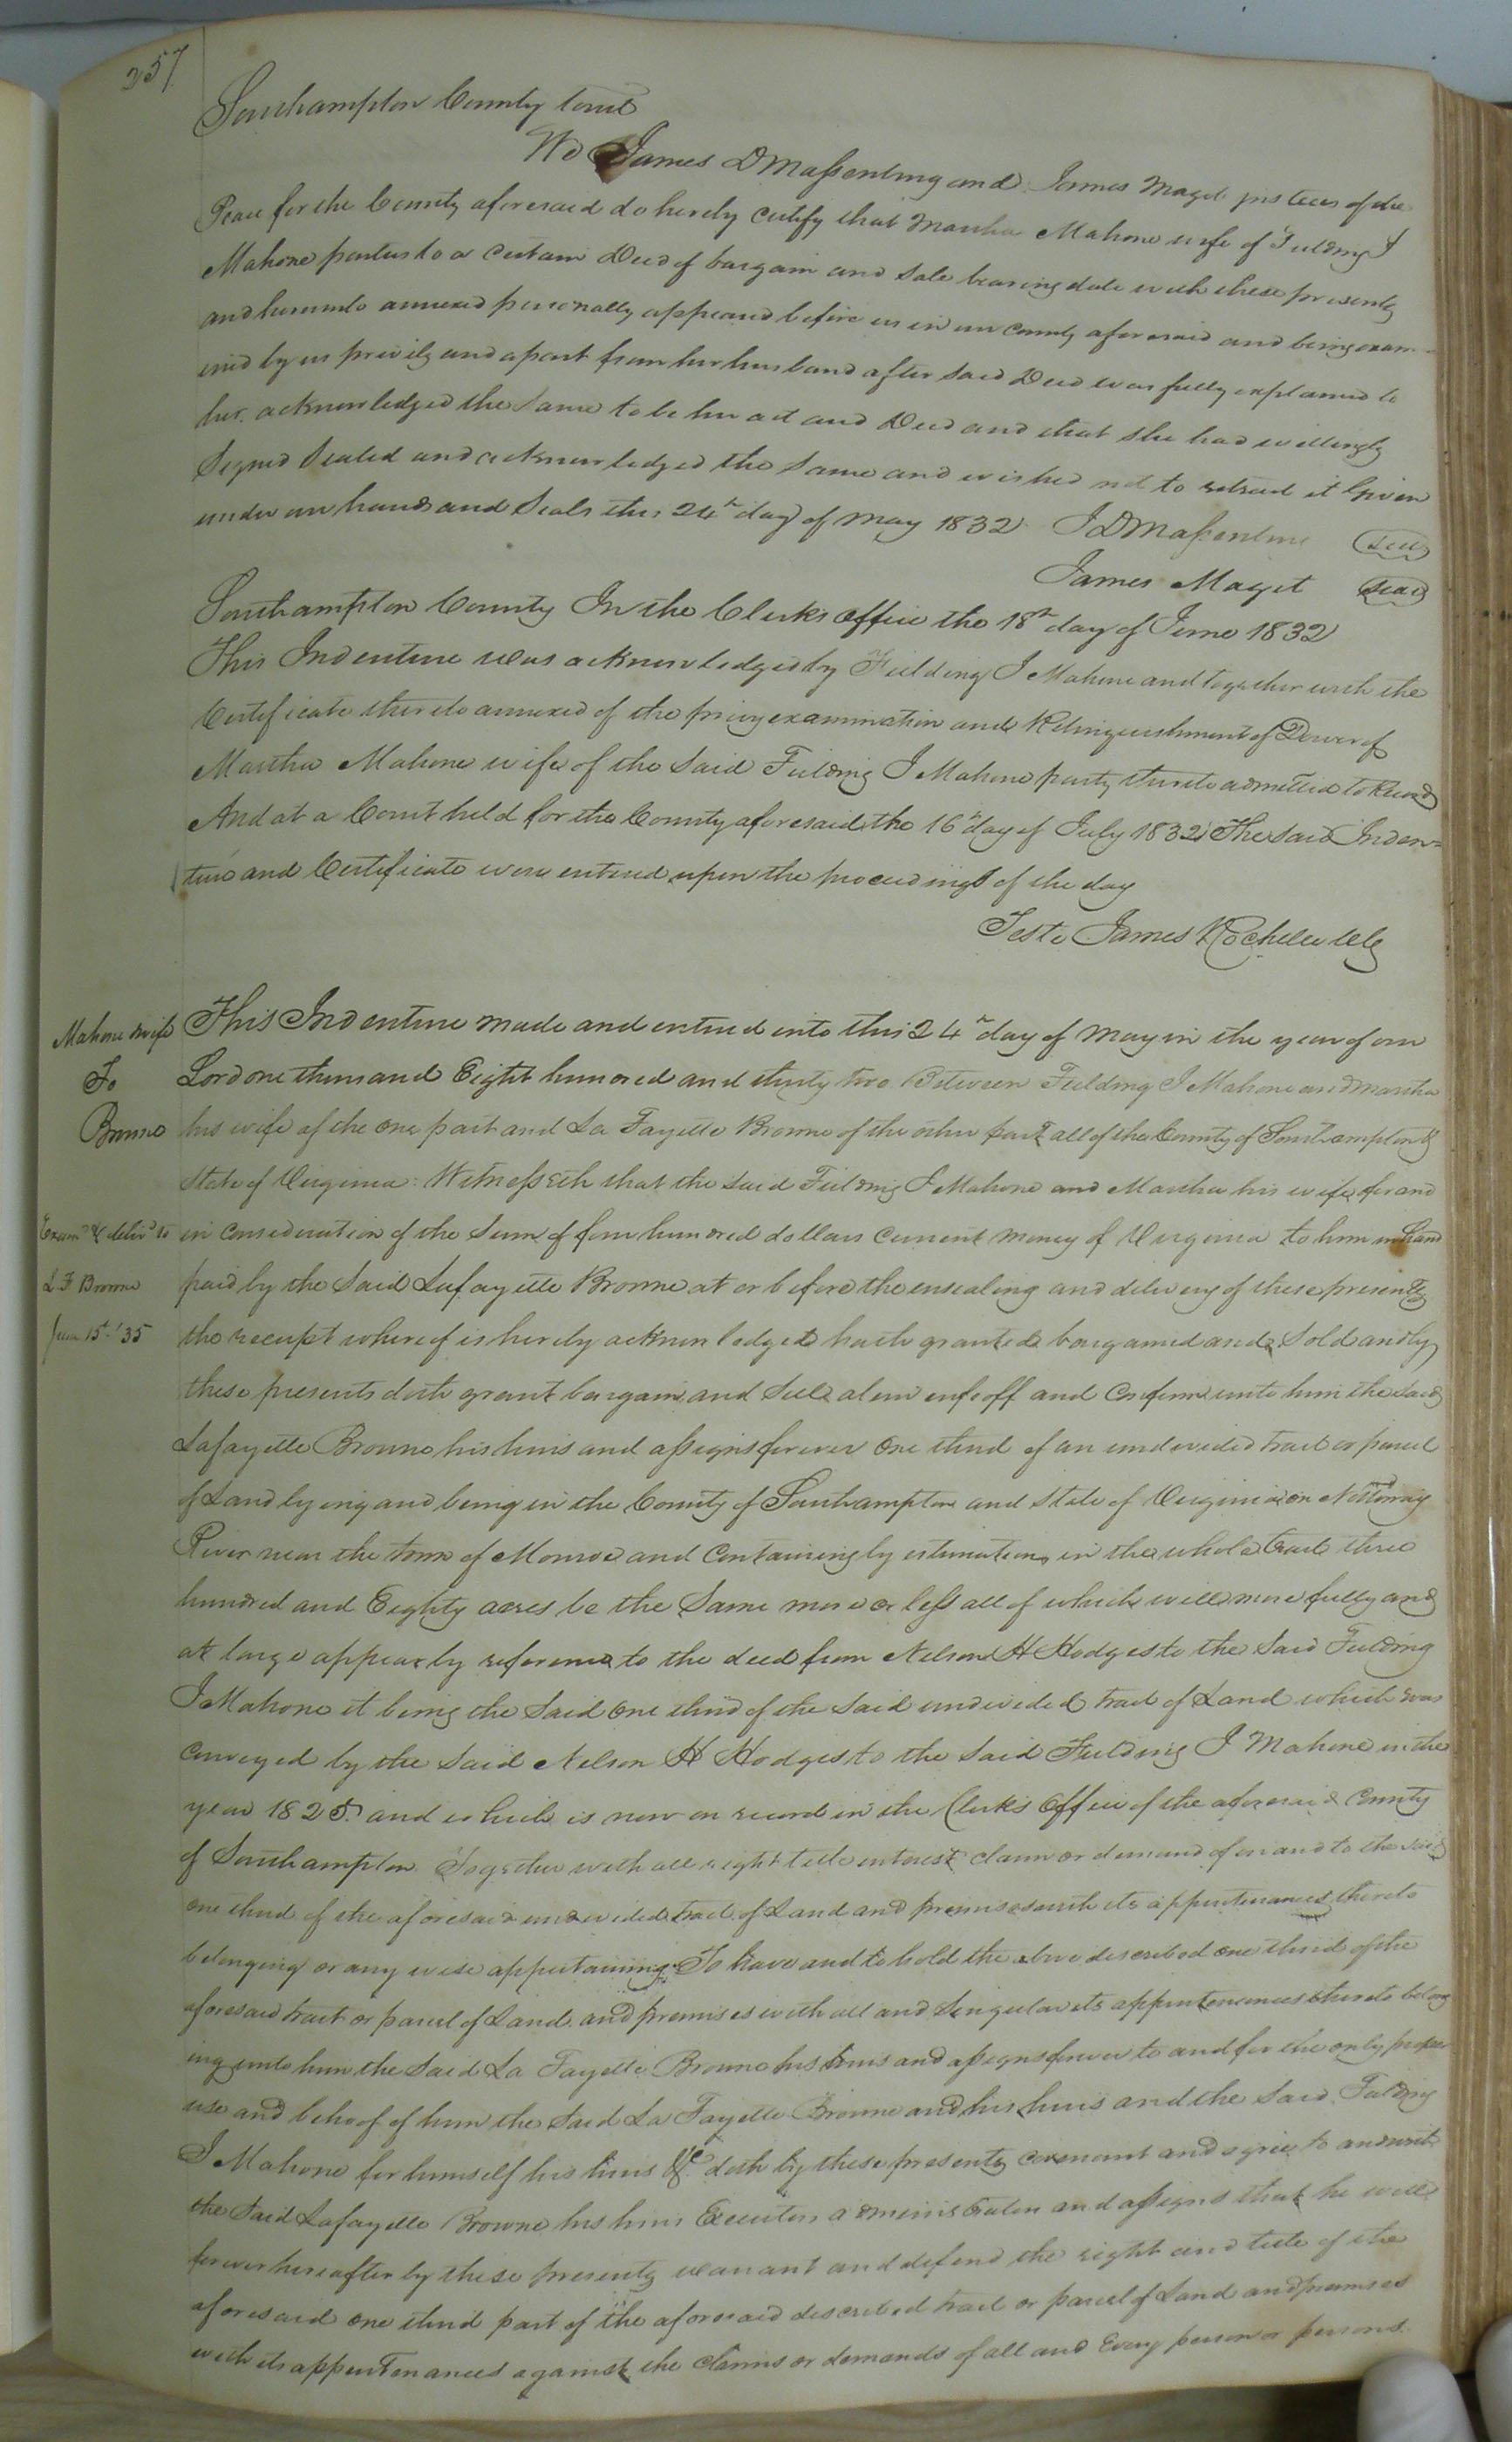 257
Southampton County towit
We James D Massenburg and James Maget justices of the
Peace for the County aforesaid do hereby certify that Martha Mahone wife of Fielding J
Mahone parties to a certain Deed of bargain and sale bearing date with these presents
and hereunto annexed personally appeared before us in our County aforesaid and being exam-
ined by us privily and apart from her husband after said Deed was fully explained to
her acknowledged the same to be her act and Deed and that she had willingly
Signed Sealed and acknowledged the same and wished not to retract it Given
under our hands and Seals this 24th day of May 1832 J D Massenburg Seal
James Maget Seal
Southampton County In the Clerks office the 18th day of June 1832
This Indenture was acknowledged by Fielding J Mahone and together with the
Certificate thereto annexed of the privy examination and Relinquishment of Dower of
Martha Mahone wife of the said Fielding J Mahone party thereto admitted to Record
And at a Court held for the County aforesaid the 16th day of July 1832 The said Inden=
ture and Certificate were entered upon the proceedings of the day
Teste James Rochelle Clk
Mahone & wife
To
Browne
Examd & delivd to
L F Browne
June 15th '35
This Indenture made and entered into this 24th day of May in the year of our
Lord one thousand Eight hundred and thirty two Between Fielding J Mahone and Martha
his wife of the one part and La Fayette Browne of the other part all of the County of Southampton &
State of Virginia: Witnesseth that the said Fielding J Mahone and Martha his wife for and
in consideration of the sum of four hundred dollars current money of Virginia to him in hand
paid by the said Lafayette Browne at or before the ensealing and delivery of these presents
the receipt whereof is hereby acknowledged hath granted bargained and Sold and by
these presents doth grant bargain and sell alien enfeoff and confirm unto him the said
Lafayette Browne his heirs and assigns forever one third of an undivided tract or parcel
of Land lying and being in the County of Southampton and State of Virginia on Nottoway
River near the town of Monroe and containing by estimation in the whole tract three
hundred and Eighty acres be the same more or less all of which will more fully and
at large appear by reference to the deed from Nelson H Hodges to the said Fielding
J Mahone it being the said one third of the said undivided tract of Land which was
conveyed by the said Nelson H Hodges to the said Fielding J Mahone in the
year 1825. and which is now on record in the Clerk's Office of the aforesaid County
of Southampton. Together with all right title interest claim or demand of in and to the said
one third of the aforesaid undivided tract of Land and premises with its appurtenances thereto
belonging or any wise appertaining. To have and to hold the above described one third of the
aforesaid tract or parcel of Land and premises with all and singular its appurtenances thereto belong
ing unto him the said La Fayette Browne his heirs and assigns forever to and for the only proper
use and behoof of him the said La Fayette Browne and his heirs and the said Fielding
J Mahone for himself his heirs &c doth by these presents covenant and agree to and with
the said Lafayette Browne his heirs Executors administrators and assigns that he will
forever hereafter by these presents warrant and defend the right and title of the
aforesaid one third part of the aforesaid described tract or parcel of Land and premises
with its appurtenances against the claims or demands of all and Every person or persons